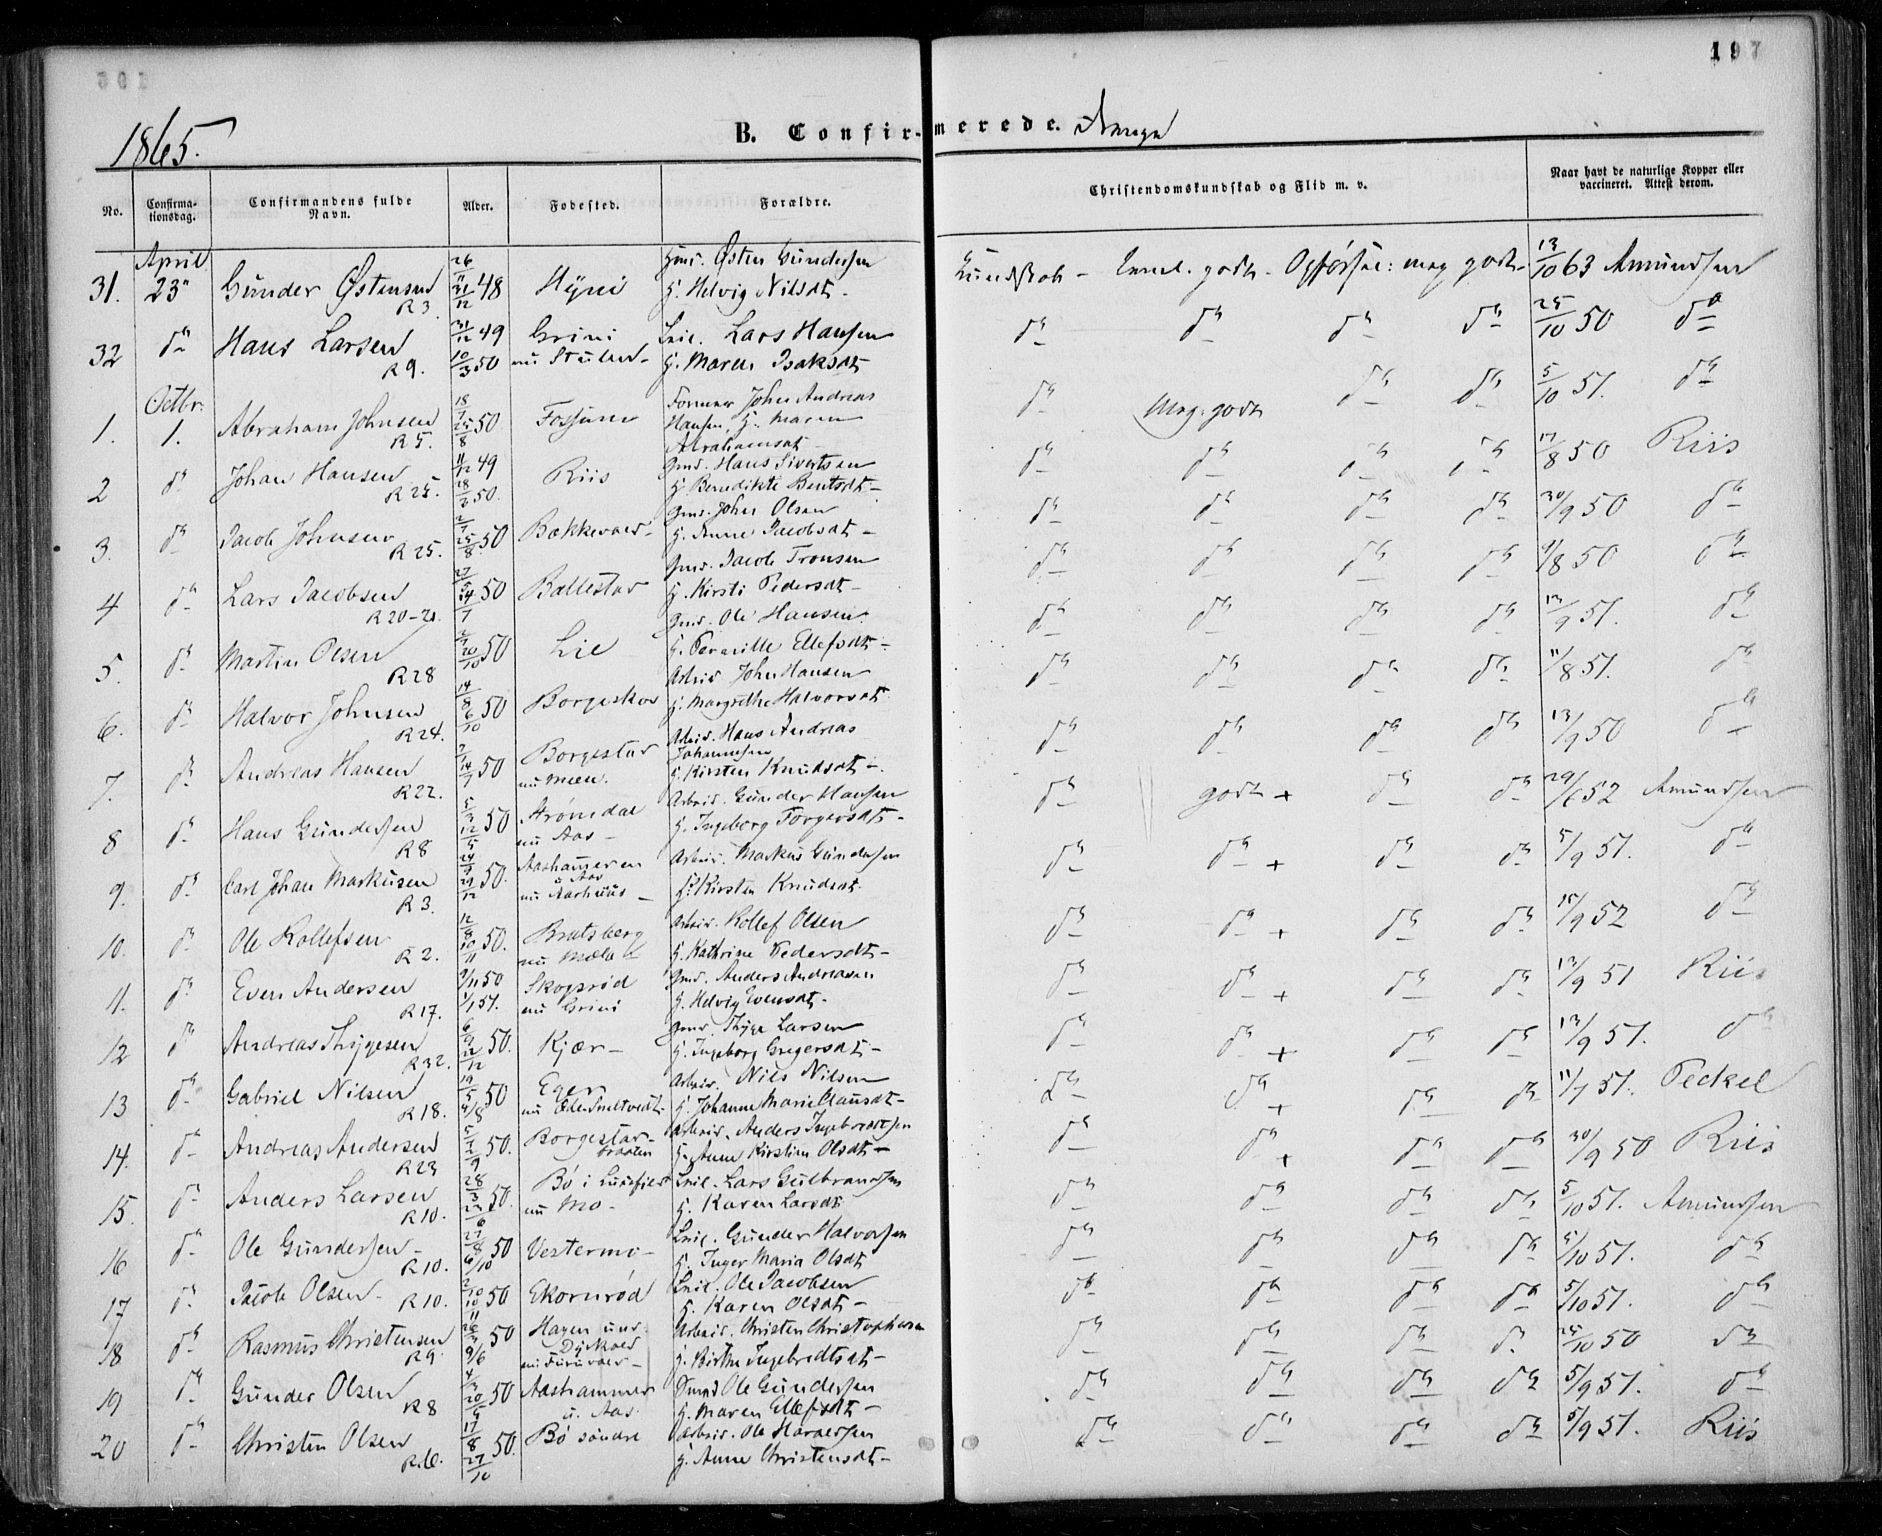 197
1865.
B. Confirmerede.
No.
Confirmationsdag.
Confirmandens fulde Navn.
Alder.
Fødested.
Forældre.
Christendomskundskab og Flid m. v.
Naar havt de naturlige Kopper eller vaccineret. Attest derom.
April
Gmd. Østen Gundersen
31. 23 Gunder Østensen 26/11 48 21/12 H. Helvig Nilsdt. Kundskab - godt - Opførsel: meg godt - 13/10 63 Amundsen
R 3.
32 do Hans Larsen 31/12 49 Grini Lars Hansen do do do do 25/10 50 do
R 9. 10/3 50 H. Maren Isaksdt
Octbr.
1. 1. Abraham Johnsen 50 Fossum Former John Andreas do Meg. godt do do 5/10 51. do
R 5. 25/8 Hansen, H. Maren
Abrahamsdt
2 do Johan Hansen 11/12 49 Riis Gmd. Hans Sivertsen do do do do 17/8 50 Riis
R 25. 18/2 50. H. Benedikte Bentsdt -
3. do Jacob Johnsen 50 25/8 Bakkevold Gmd. John Olsen do do do do 30/9 50 do
R 25. H. Anne Jacobsdt -
4 do Lars Jacobsen 50 Ballestad Gmd. Jacob Tronsen do do do do 9/8 50 do
R 20-21. H. Kirsti Pedersdt -
5. do Martin Olsen 50 20/10 Lie Gmd. Ole Hansen. do do do do 13/9 51. do
R 28 H. Pernille Ellefsdt -
6. do Halvor Johnsen 14/8 50 6/10 Arbeid. John Hansen do do do do 11/8 51. do
R 24. H. Margrethe Halvorsdt
7. do Andreas Hansen 50 Borgestad Arbeid. Hans Andreas do do do do 13/9 50 do
R 22. nu Mæen. Johannesen
H. Kirsten Knudsdt -
8 do Hans Gundersen 5/3 50 12/5 Strømdal Arbeid. Gunder Hansen do godt + do do 29/6 52 Amundsen
R 8 nu Aas - H. Ingeborg Torgersdt -
9. do Carl Johan Markusen 50. 29/12 Aashammeren Arbeid. Markus Gundersen do do + do do 5/9 51. do
R 3. u. Aas
nu Aarhuus - H. Kirsten Knudsdt.
10. do Ole Rollefsen 12/8 50. 10/11 Bratsberg Arbeid. Rollef Olsen do do + do do 15/9 52 do
R 2. nu Mæla H. Kathrine Pedersdt -
11. do Even Andersen 9/11 50 Skogsrød Gmd. Anders Andreasen do do + do do 13/9 51 Riis
R 17. 1/1 51. nu Grini H. Helvig Evensdt -
12 do Andreas Thygesen 6/9 50. 22/12 Kjær - Gmd. Thyge Larsen do do + do do 13/9 51. do
R 32. H. Ingeborg Gregersdt -
13 do Gabriel Nilsen 19/5 50 4/8 Eger Arbeid. Nils Nilsen do do + do do 11/7 51. Peckel
R 18. H. Johanne Marie Clausdt -
14. do Andreas Andersen 50. Borgestad - Arbeid. Anders Ingebretsen do do + do do 30/9 50 Riis
R 23 braaten H. Anne Kirstine Olsdt -
15. do Anders Larsen 28/3 50. 23/6 Bø i Lars Gulbrandsen do do do do 5/10 51. Amundsen
R 10. nu Mo - H. Karen Larsdt
16 do Ole Gundersen - 27/8 50 6/10 Vestermo - Gunder Halvorsen do do do do 5/10 51. do
R 10. H. Inger Maria Olsdt -
17 do Jacob Olsen - 2/10 50 10/11 Ekornrød Ole Jacobsen do do do do 5/10 51. do
R 10. H. Karen Olsdt -
18 do Rasmus Christensen 50 9/6 Hagen und. Arbeid. Christen Christophersen do do do do 25/10 50 do
R 9. nu Furuvald - H. Birthe Ingebretsdt -
19 do Gunder Olsen 50 Aashammer Ole Gundersen do do do do 5/9 51. do
R 8 u. Aas. H. Maren Ellefsdt -
20 do Christen Olsen 17/8 50. 27/10 Bø søndre Arbeid. Ole Halvorsen do do do do 5/9 51. Riis
H. Anne Christensdt -